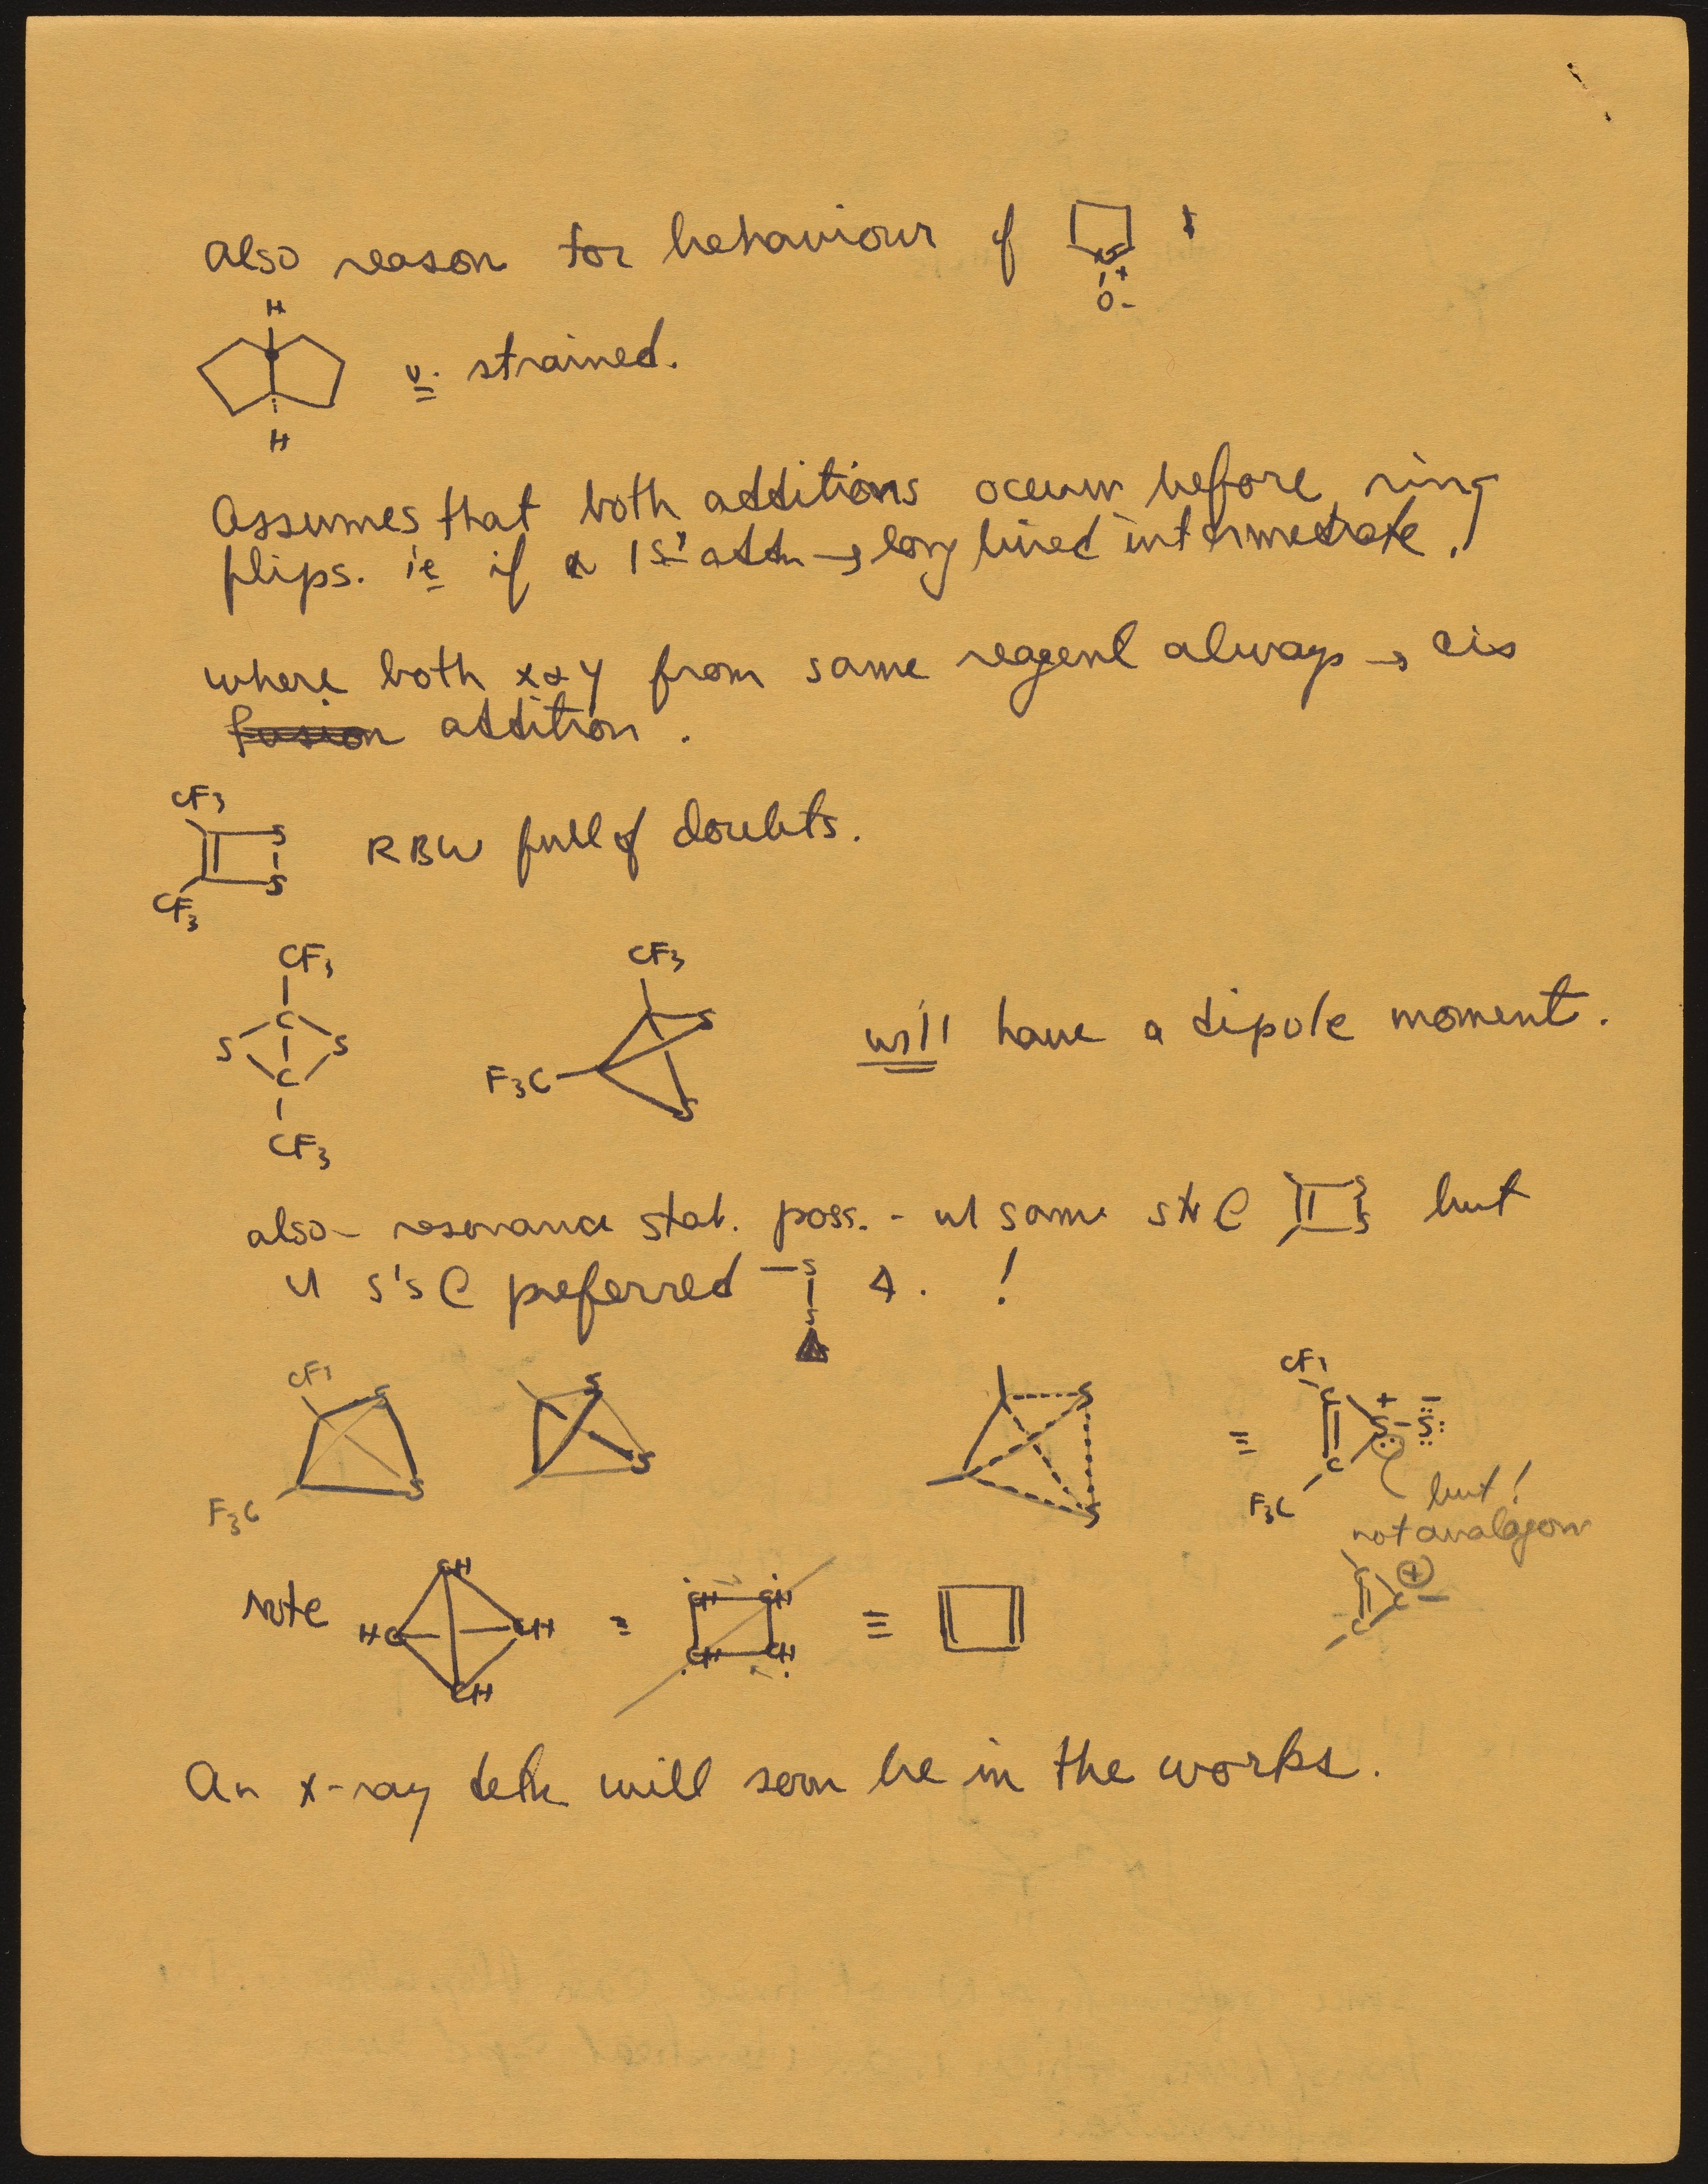 also reason for behaviour of
S
+
O-
H
v. strained.
H
Assumes that both additions occur before ring
flips. ie if 1st addn → long lived intermediate.
where both x & y from same reagent always → cis
fusion addition.
CF3
S
S
CF3
RBW full of doubts.
CF3
C
S S
C
CF3
CF3
S
F3C
S
will have a dipole moment.
also - resonance stab. poss. - w same S S but
S's preferred -S !
S
CF3
S
S
F3C
S
S
S
S
≡
CF3
C + -
S-S:
C
F3C
but!
not analagous
C ⊕
C-
C
Note
CH
HC CH
CH
≡
CH CH
CH CH
≡
An x-ray detn will soon be in the works.